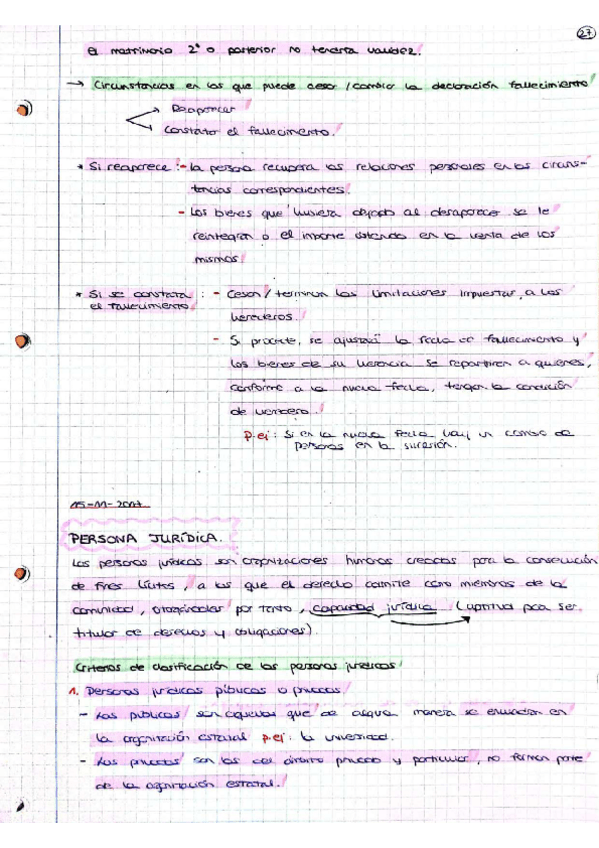 27
El matrimonio 2º o posterior no tendría validez.
→ Circunstancias en las que puede cesar / cambiar la declaración fallecimiento
Reaparecer
Constatar el fallecimiento.
* Si reaparece: - la persona recupera las relaciones personales en las circuns-
tancias correspondientes.
- Los bienes que hubiera dejado al desaparecer se le
reintegran o el importe obtenido en la venta de los
mismos
* Si se constata : - Cesan / terminan las limitaciones impuestas a los
el fallecimiento
herederos.
- Si procede, se ajustará la fecha de fallecimiento y
los bienes de su herencia se repartiran a quienes,
conforme a la nueva fecha, tengan la condición
de heredero.
p.ej: Si en la nueva fecha hay un cambio de
personas en la sucesión.
15-11-2017
PERSONA JURÍDICA.
Las personas jurídicas son organizaciones humanas creadas para la consecución
de fines lícitos, a las que el derecho admite como miembros de la
comunidad, otorgándoles por tanto, capacidad jurídica (aptitud para ser
titular de derechos y obligaciones).
Criterios de clasificación de las personas jurídicas
1. Personas jurídicas públicas o privadas
- Las públicas son aquellas que de alguna manera se encuadran en
la organización estatal p.ej: la universidad.
- Las privadas son las del ámbito privado y particular, no forman parte
de la organización estatal.